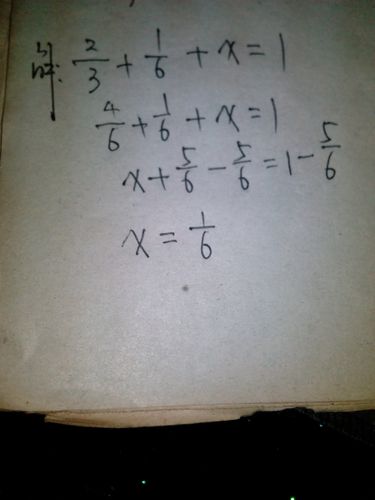 解: 2/3 + 1/6 + x = 1
4/6 + 1/6 + x = 1
x + 5/6 - 5/6 = 1 - 5/6
x = 1/6